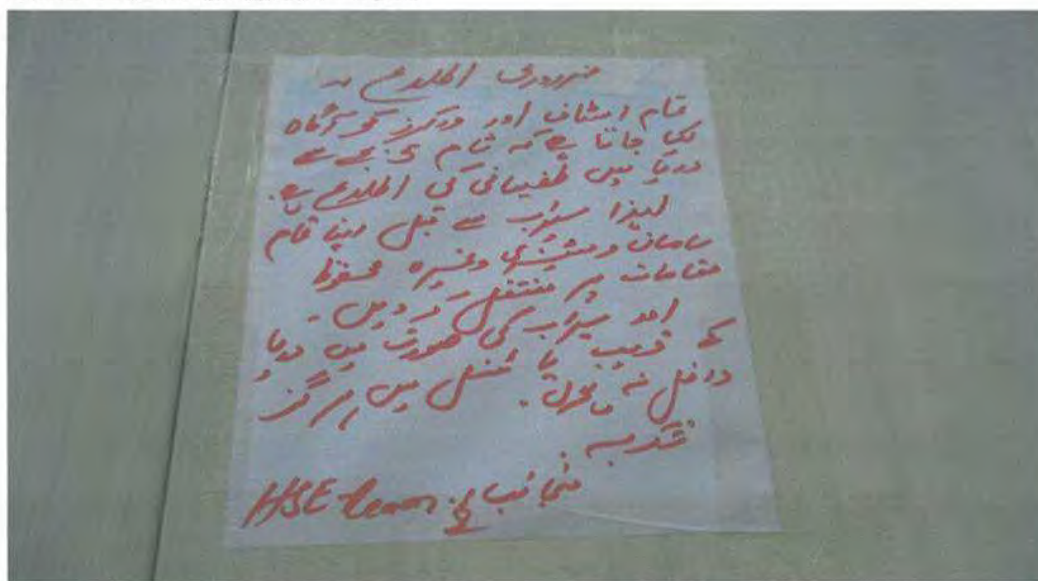 ضروری اطلاع
تمام اسٹاف اور ورکرز کو آگاہ
کیا جاتا ہے کہ شام بجے سے
دریا میں طغیانی کی اطلاع ہے۔
لہذا سیلاب سے قبل اپنا تمام
سامان و مشینری وغیرہ محفوظ
مقامات پر منتقل کر دیں۔
اور سیلاب کی صورت میں دریا
کے قریب یا ٹنل میں ہرگز
داخل نہ ہوں۔
شکریہ
منجانب HSE team